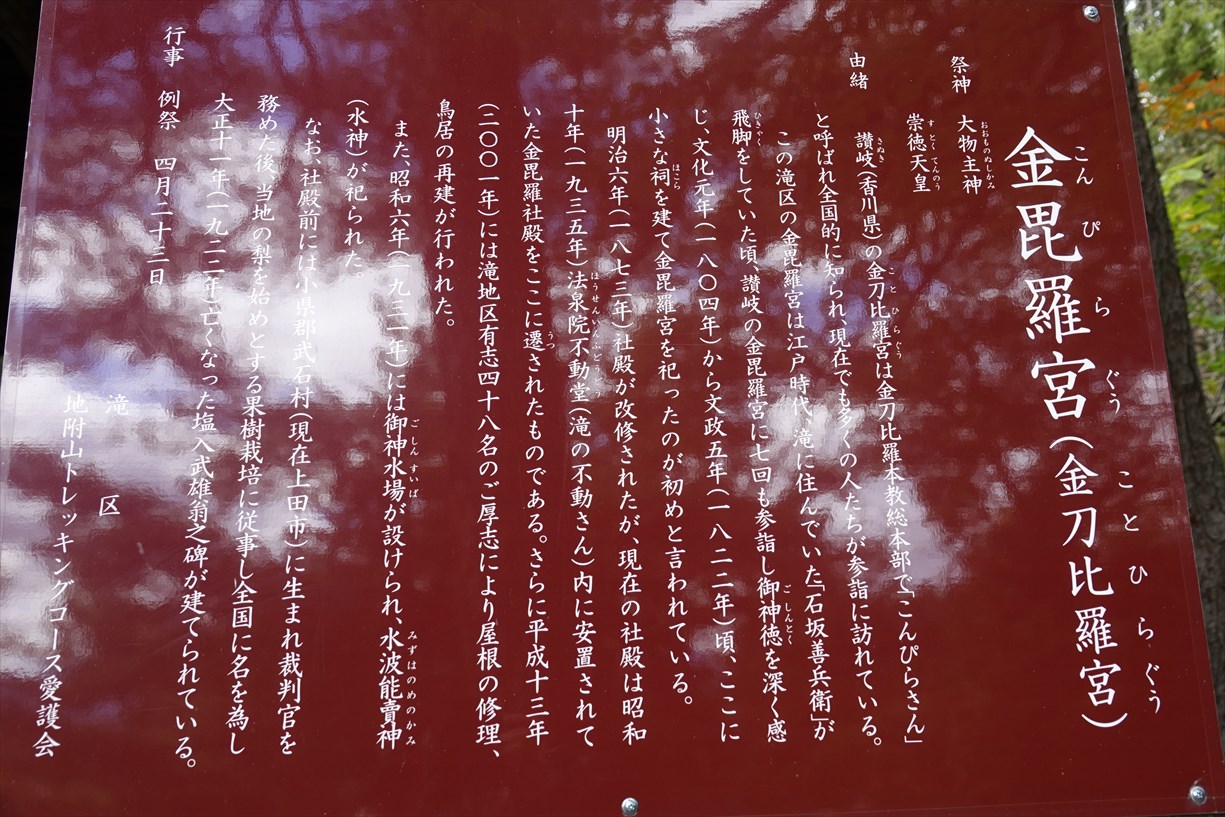 金毘羅宮(金刀比羅宮)
こんぴらぐう ことひらぐう
祭神 大物主神
おおものぬしかみ
崇徳天皇
すとくてんのう
由緒 讃岐(香川県)の金刀比羅宮は金刀比羅本教総本部で「こんぴらさん」
さぬき ことひらぐう
と呼ばれ全国的に知られ、現在でも多くの人たちが参詣に訪れている。
この滝区の金毘羅宮は江戸時代、滝に住んでいた「石坂善兵衛」が
飛脚をしていた頃、讃岐の金毘羅宮に七回も参詣し御神徳を深く感
ひきゃく ごしんとく
じ、文化元年(一八〇四年)から文政五年(一八二二年)頃、ここに
小さな祠を建て金毘羅宮を祀ったのが初めと言われている。
ほこら
明治六年(一八七三年)社殿が改修されたが、現在の社殿は昭和
十年(一九三五年)法泉院不動堂(滝の不動さん)内に安置されて
ほうせんいんふどうどう
いた金毘羅社殿をここに遷されたものである。さらに平成十三年
うつ
(二〇〇一年)には滝地区有志四十八名のご厚志により屋根の修理、
鳥居の再建が行われた。
また、昭和六年(一九三一年)には御神水場が設けられ、水波能賣神
ごしんすいば みずはのめのかみ
(水神)が祀られた。
なお、社殿前には小県郡武石村(現在上田市)に生まれ裁判官を
務めた後、当地の梨を始めとする果樹栽培に従事し全国に名を為し
大正十一年(一九二二年)亡くなった塩入武雄翁之碑が建てられている。
行事 例祭 四月二十三日
滝区
地附山トレッキングコース愛護会